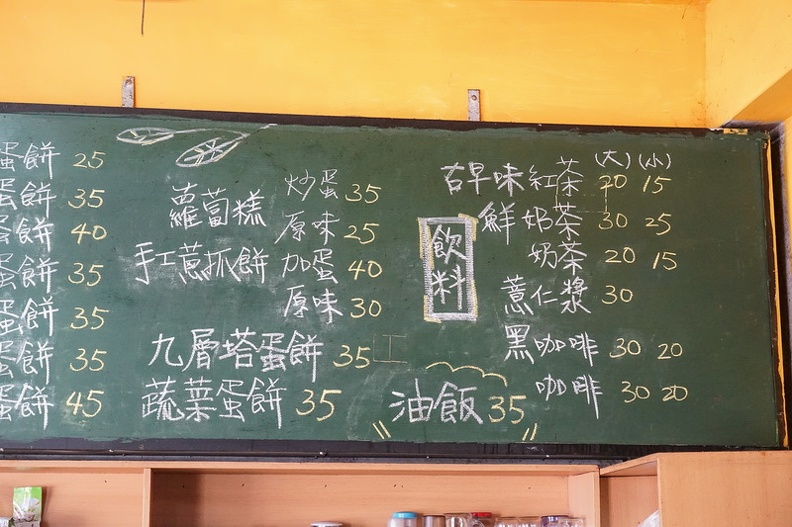 蛋餅 25
蛋餅 35
蛋餅 40
蛋餅 35
蛋餅 35
蛋餅 35
蛋餅 45
蘿蔔糕 炒蛋 35
原味 25
手工蔥抓餅 加蛋 40
原味 30
九層塔蛋餅 35
蔬菜蛋餅 35
油飯 35
飲料
(大) (小)
古早味紅茶 20 15
鮮奶茶 30 25
奶茶 20 15
薏仁漿 30
黑咖啡 30 20
咖啡 30 20